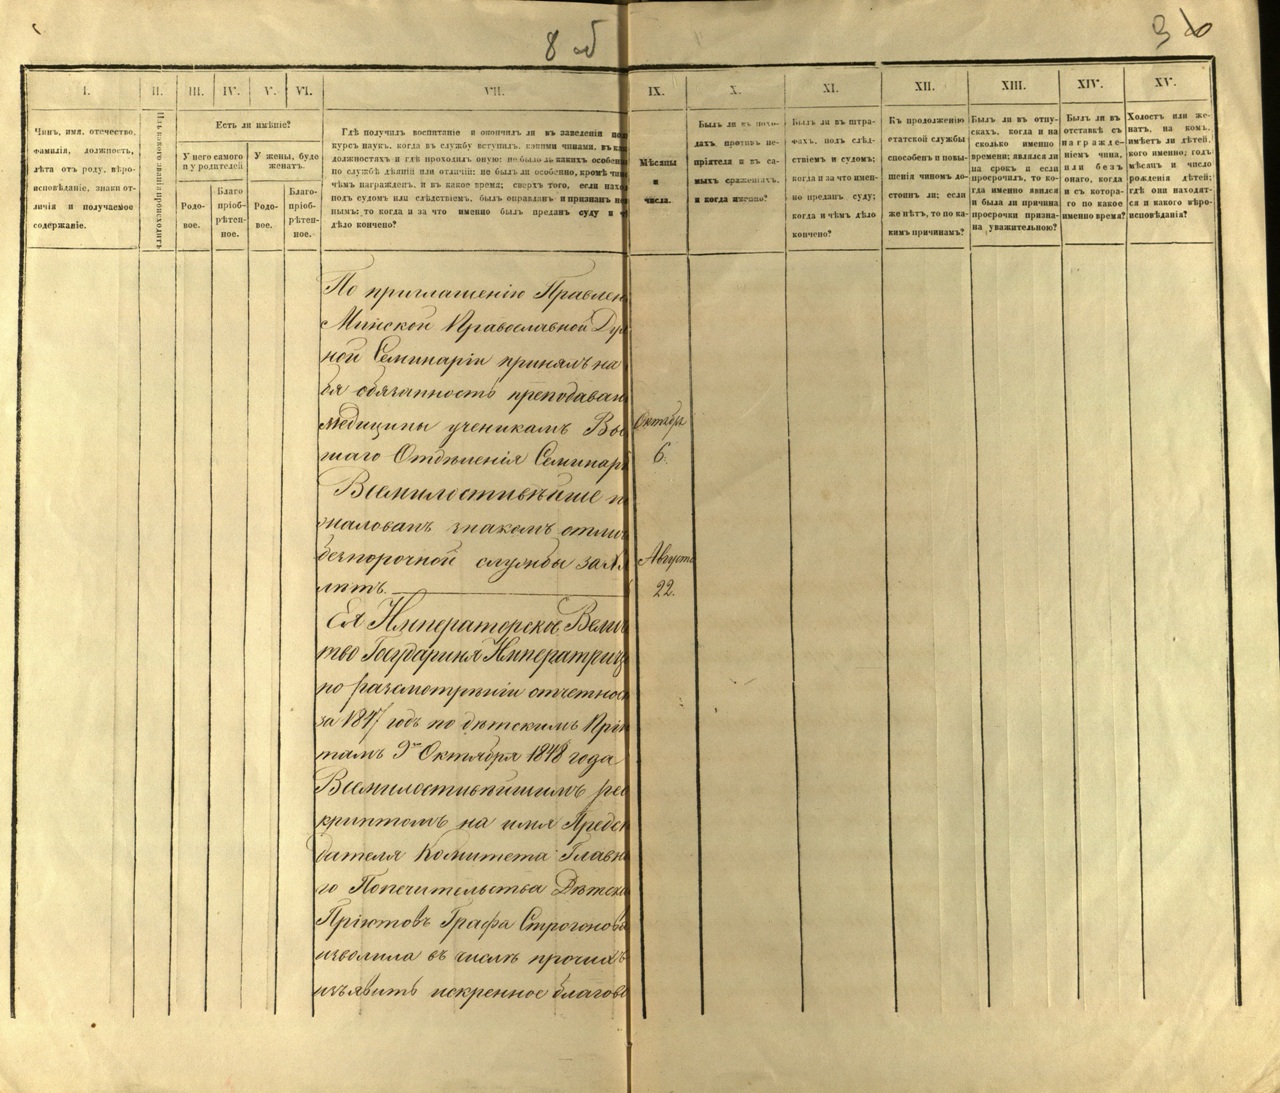 8 об
I.
II.
III.
IV.
V.
VI.
VII.
IX.
X.
XI.
XII.
XIII.
XIV.
XV.
Чинъ, имя, отечество,
фамилія, должность,
лѣта отъ роду, вѣро-
исповѣданіе, знаки от-
личія и получаемое
содержаніе.
Изъ какого званія происходитъ
Есть ли имѣніе?
У него самого
и у родителей
У жены, буде
женатъ.
Родо-
вое.
Благо
пріоб-
рѣтен-
ное.
Родо-
вое.
Благо-
пріоб-
рѣтен-
ное.
Гдѣ получилъ воспитаніе и окончилъ ли въ заведеніи
курсъ наукъ, когда въ службу вступилъ, какими чинами, въ
должностяхъ и гдѣ проходилъ оную: не было ли какихъ особен
по службѣ дѣяній или отличій: не былъ ли особенно, кромѣ
чѣмъ награжденъ, и въ какое время; сверхъ того, если
подъ судомъ или слѣдствіемъ, былъ оправданъ и признанъ
нымъ; то когда и за что именно былъ преданъ суду и
дѣло кончено?
Мѣсяцы
и
числа.
Былъ ли въ похо-
дахъ противъ не-
пріятеля и въ са-
мыхъ сраженіяхъ,
и когда имянно?
Былъ ли въ штра-
фахъ, подъ слѣд-
ствіемъ и судомъ;
когда и за что имен-
но преданъ суду;
когда и чѣмъ дѣло
кончено?
Къ продолженію
статской службы
способенъ и повы-
шенія чиномъ до-
стоинъ ли; если
же нѣтъ, то по ка-
кимъ причинамъ?
Былъ ли въ отпу-
скахъ, когда и на
сколько именно
времени; являлся ли
на срокъ и если
просрочилъ, то ко-
гда именно явился
и была ли причина
просрочки призна-
на уважительною?
Былъ ли въ
отставкѣ съ
награжде-
ніемъ чина,
или безъ
онаго, когда
и съ котора-
го по какое
именно время?
Холостъ или же-
натъ, на комъ,
имѣетъ ли дѣтей,
кого именно; годъ
мѣсяцъ и число
рожденія дѣтей;
гдѣ они находят-
ся и какого вѣро-
исповѣданія?
По приглашенію Правлен
Минской Православной Ду
ной Семинаріи принялъ на
бя обязанность преподаван
медицины ученикамъ Вы
шаго Отдѣленія Семинар
Октября
6.
Всемилостивѣйше п
жалованъ знакомъ отлич
безпорочной службы за
лѣтъ.
Августа
22.
Ея Императорское Велич
тво Государиня Императриц
по разсмотрѣніи отчетнос
за 1847 годъ по дѣтскимъ Прію
тамъ 9го Октября 1848 года
Всемилостивѣйшимъ рес
криптомъ на имя Предсѣ
дателя Комитета Главна
го Попечительства Дѣтски
Пріютовъ Графа Строгонова
изволила въ числѣ прочихъ
изъявить искренное благов